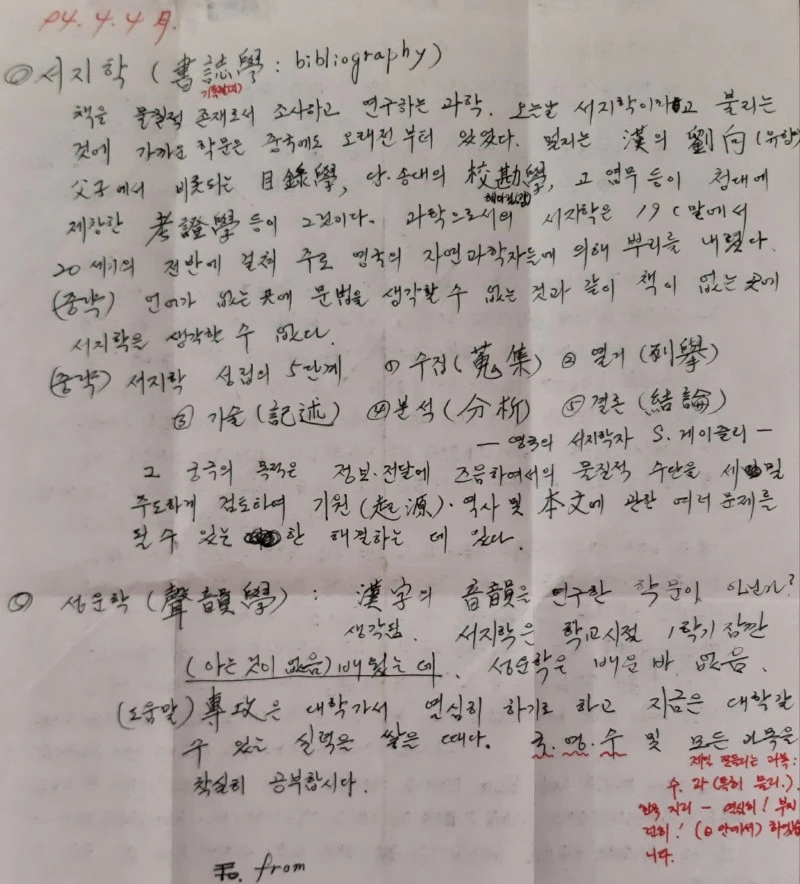 94. 4. 4 月.
◎ 서지학 (書誌學 : bibliography)
책을 물질적 존재로서 조사하고 연구하는 과학. 오늘날 서지학이라고 불리는
것에 가까운 학문은 중국에도 오래전부터 있었다. 멀리는 漢의 劉向(유향)
父子에서 비롯되는 目錄學, 당·송대의 校勘學, 그 업무 등이 청대에
제창한 考證學 등이 그것이다. 과학으로서의 서지학은 19C 말에서
20세기의 전반에 걸쳐 주로 영국의 자연과학자들에 의해 뿌리를 내렸다.
(중략) 언어가 없는 곳에 문법을 생각할 수 없는 것과 같이 책이 없는 곳에
서지학을 생각할 수 없다.
(중략) 서지학 성립의 5단계 ① 수집(蒐集) ② 열거(列擧)
③ 기술(記述) ④ 분석(分析) ⑤ 결론(結論)
— 영국의 서지학자 S. 게이즐리 —
그 궁극의 목적은 정보·전달에 즈음하여서의 물질적 수단을 세밀
주도하게 검토하여 기원(起源)·역사 및 本文에 관한 여러 문제를
될 수 있는 한 해결하는 데 있다.
◎ 성운학(聲韻學) : 漢字의 音韻을 연구한 학문이 아닌가?
생각됨. 서지학은 학교시절 1학기 잠깐
(아는 것이 없음) 배웠는데. 성운학은 배운 바 없음.
(도움말) 專攻은 대학가서 열심히 하기로 하고 지금은 대학갈
수 있는 실력을 쌓을 때다. 국·영·수 및 모든 과목을
착실히 공부합시다.
제일 필요되는 과목:
수. 과(특히 물리.).
한국 지리 - 열심히! 부지
런히! 안에서)
니다.
from